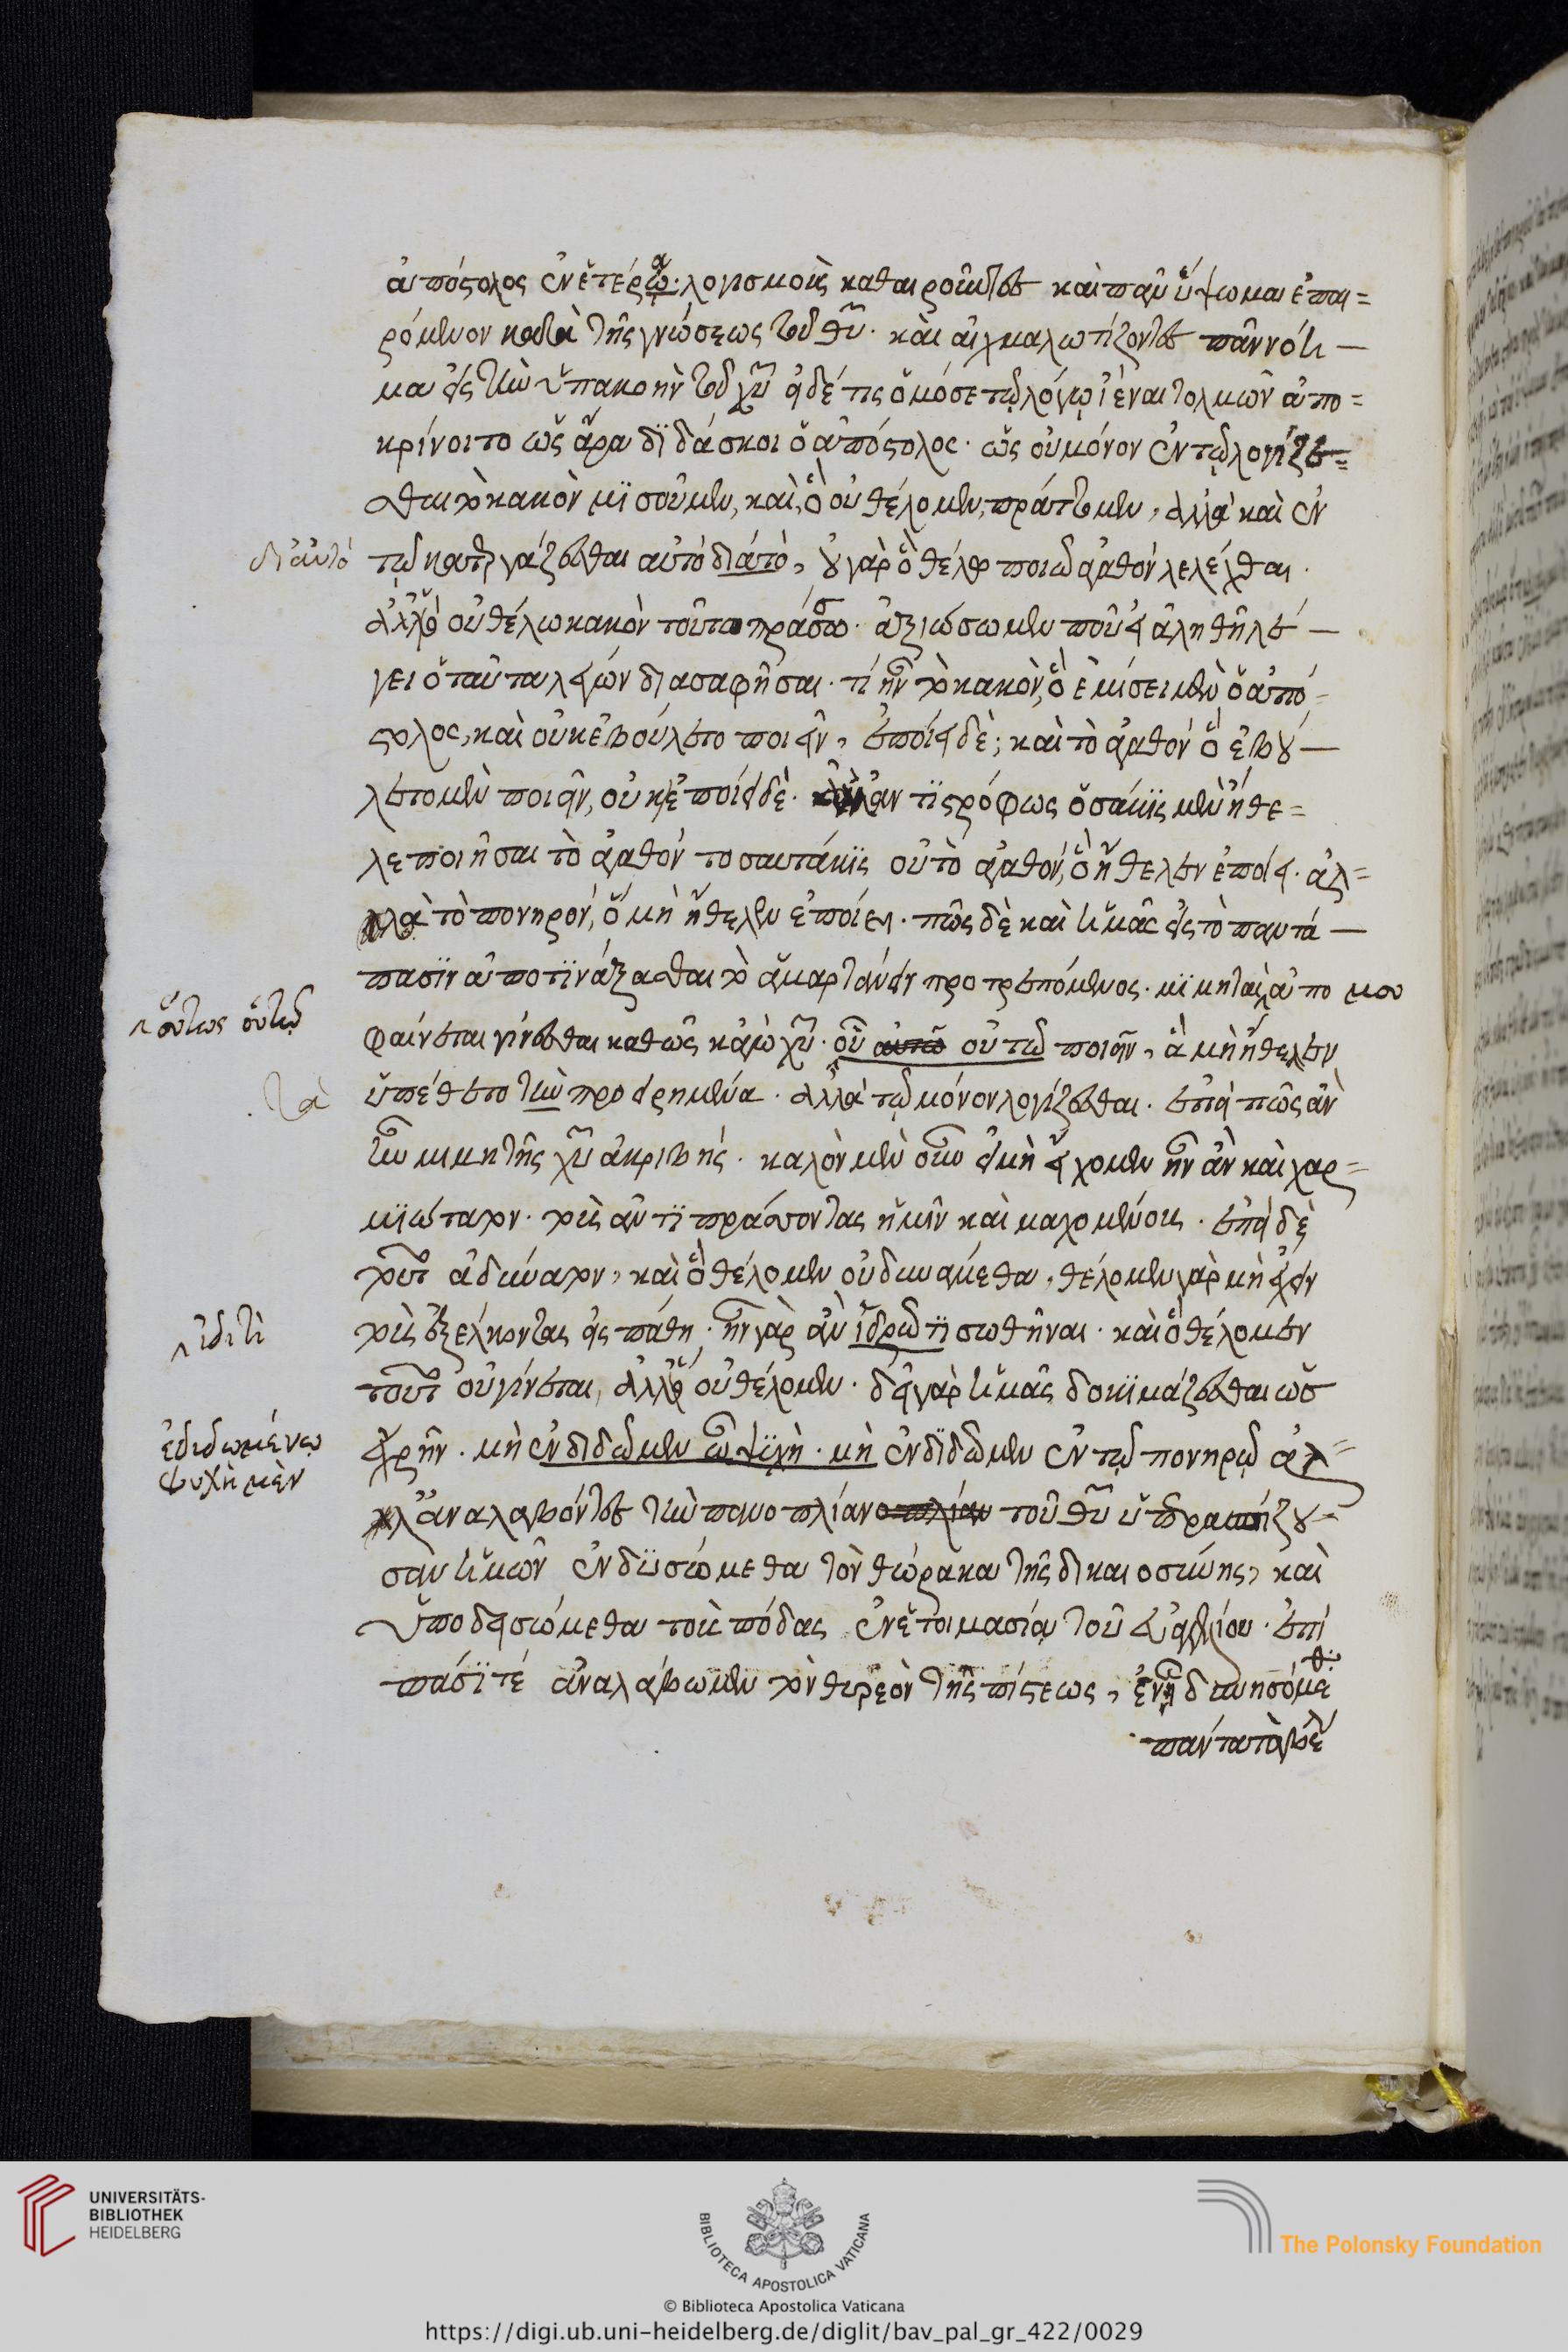 ἀπόστολος ἐν ἑτέρῳ· λογισμοὺς καθαιροῦντες καὶ πᾶν ὕψωμα ἐπαι=
ρόμενον κατὰ τῆς γνώσεως τοῦ θυ̅· καὶ αἰχμαλωτίζοντες πᾶν νόη—
μα εἰς τὴν ὑπακοὴν τοῦ χυ̅ εἰ δέ τις ὁμόσε τῷ λόγῳ ἰέναι τολμῶν ἀπο=
κρίνοιτο ὡς ἄρα διδάσκοι ὁ ἀπόστολος· ὡς οὐ μόνον ἐν τῷ λογίζε=
σθαι τὸ κακὸν μισοῦμεν, καὶ, ὃ οὐ θέλομεν, πράττομεν, ἀλλὰ καὶ ἐν
δι' αὐτὸ
τῷ κατεργάζεσθαι αὐτὸ διὰτὸ, οὐ γὰρ ὃ θέλω ποιῶ ἀγαθόν λελέχθαι·
ἀλλ' ὃ οὐ θέλω κακὸν τοῦτο πράσσω· ἀξιώσωμεν που εἰ ἀληθῆ λέ—
γει ὁ ταῦτα λέγων διασαφῆσαι· τί ἦν τὸ κακὸν, ὃ ἐμίσει μὲν ὁ ἀπό=
στολος, καὶ οὐκ ἐβούλετο ποιεῖν, ἐποίει δὲ; καὶ τὸ ἀγαθόν ὃ ἐβού—
λετο μὲν ποιεῖν, οὐκ ἐποίει δὲ· ἀντιστρόφως ὁσάκις μὲν ἤθε=
λε ποιῆσαι τὸ ἀγαθόν τοσαυτάκις οὐ τὸ ἀγαθόν, ὃ ἤθελεν ἐποίει· ἀλ=
λὰ τὸ πονηρόν, ὃ μὴ ἤθελεν ἐποίει· πῶς δὲ καὶ ἡμᾶς εἰς τὸ παντά—
πασιν ἀποτινάξασθαι τὸ ἁμαρτάνειν προτρεπόμενος· μιμηταὶ, ἀπο μου
οὕτως οὕτω
φαίνεται γίνεσθαι καθὼς κἀγὼ χυ̅· οὐ αὐτῶ οὐτῶ ποιεῖν, ἃ μὴ ἤθελεν
τὰ
ὑπέθετο τὴν προειρημένα· ἀλλὰ τῷ μόνον λογίζεσθαι· ἐπεὶ πῶς ἂν
ἦν μιμητὴς χυ̅ ἀκριβής· καλὸν μὲν οὖν εἰ μὴ εἴχομεν ἦν ἂν καὶ χαρ=
μιώτατον· τοὺς ἀντιπράσσοντας ἡμῖν καὶ μαχομένους· ἐπεὶ δὲ
τοῦτο ἀδύνατον, καὶ ὃ θέλομεν οὐ δυνάμεθα, θέλομεν γὰρ μὴ ἔχειν
ἰδιτὶ
τοὺς ἐξέλκοντας εἰς πάθη· ἦν γὰρ ἂν ἱδρωτι σωθῆναι· καὶ ὃ θέλομεν
τοῦτο οὐ γίνεται, ἀλλ' ὃ οὐ θέλομεν· δεῖ γὰρ ἡμᾶς δοκιμάζεσθαι ὡς
ἐδιδωμένω
ψυχὴ μὲν
ἔφην· μὴ ἐνδιδῶμεν ὦ ψυχὴ· μὴ ἐνδιδῶμεν ἐν τῷ πονηρῷ ἀλ=
λ' ἀναλαβόντες τὴν πανοπλίαν οπλίαν τοῦ θυ̅ ὑπερασπίζου=
σαν ἡμῶν ἐνδυσώμεθα τὸν θώρακα τῆς δικαιοσύνης, καὶ
ὑποδησώμεθα τοὺς πόδας ἐν ἑτοιμασίᾳ τοῦ εὐαγγελίου· ἐπὶ
πᾶσί τέ ἀναλάβωμεν τὸν θυρεὸν τῆς πίστεως, ἐν ᾧ δυνησόμεθα
πάντα τὰ βέλ
UNIVERSITÄTS-
BIBLIOTHEK
HEIDELBERG
BIBLIOTECA APOSTOLICA VATICANA
The Polonsky Foundation
© Biblioteca Apostolica Vaticana
https://digi.ub.uni-heidelberg.de/diglit/bav_pal_gr_422/0029